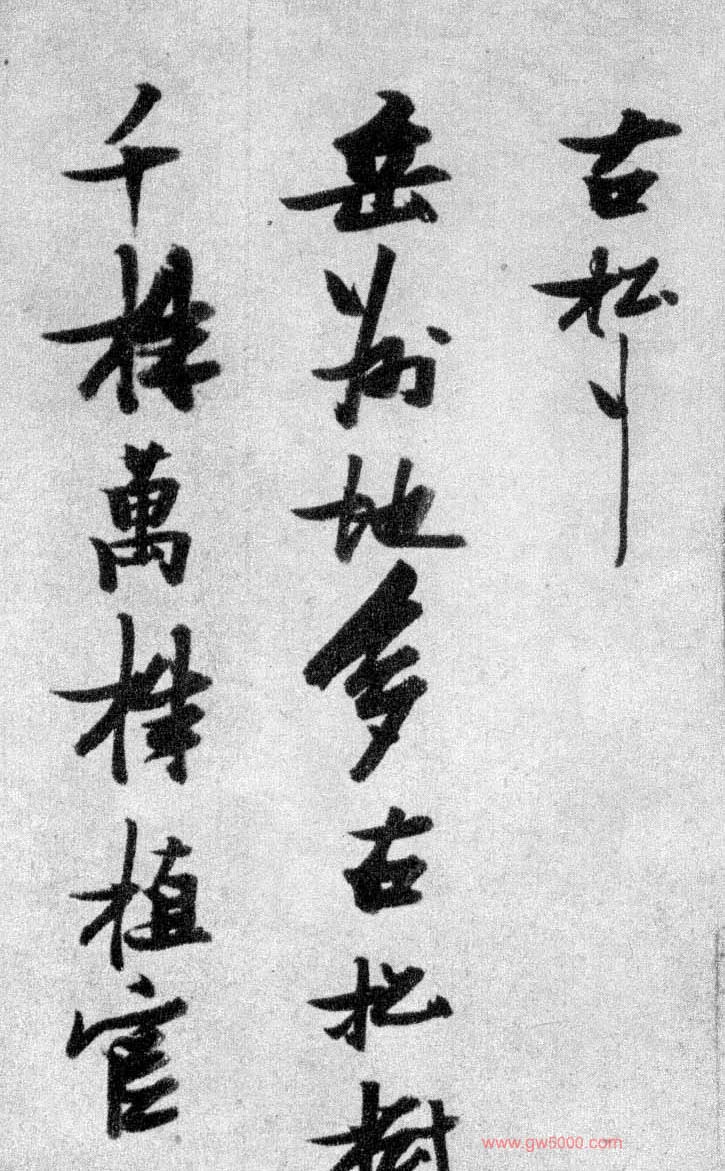 古松
岳州地多古松樹
千株萬株植官
www.gw5000.com